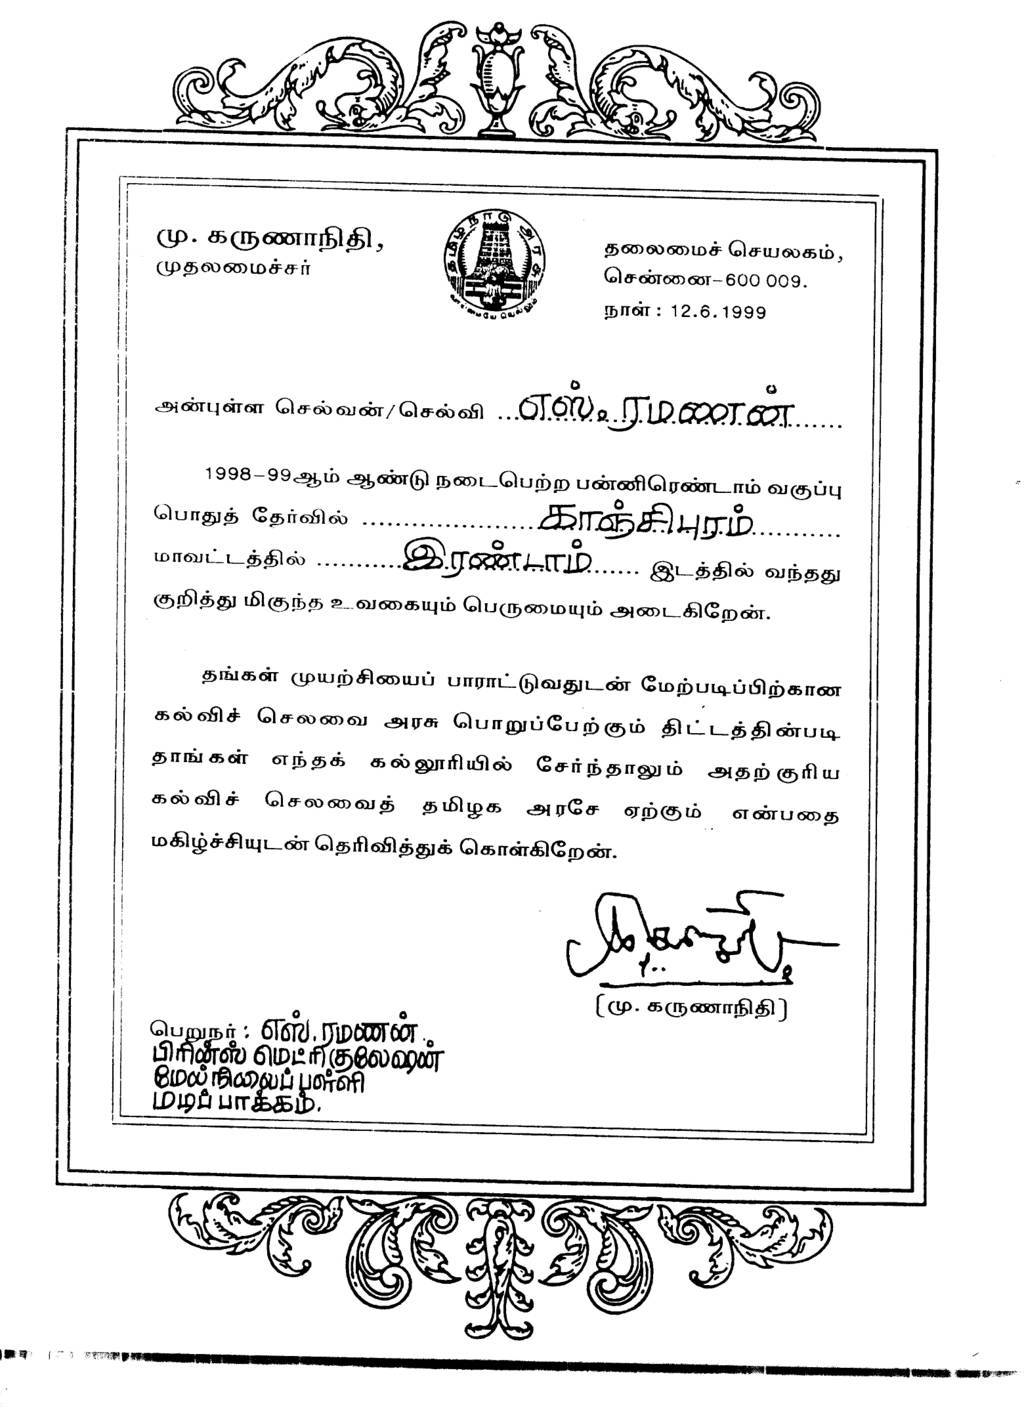 மு. கருணாநிதி,
முதலமைச்சர்
தமிழ்நாடு அரசு
வாய்மையே வெல்லும்
தலைமைச் செயலகம்,
சென்னை–600 009.
நாள் : 12.6.1999
அன்புள்ள செல்வன்/செல்வி ...எஸ். ரமணன்.......
1998–99ஆம் ஆண்டு நடைபெற்ற பன்னிரெண்டாம் வகுப்பு
பொதுத் தேர்வில் ........................காஞ்சிபுரம்...........
மாவட்டத்தில் ...........இரண்டாம்....... இடத்தில் வந்தது
குறித்து மிகுந்த உவகையும் பெருமையும் அடைகிறேன்.
தங்கள் முயற்சியைப் பாராட்டுவதுடன் மேற்படிப்பிற்கான
கல்விச் செலவை அரசு பொறுப்பேற்கும் திட்டத்தின்படி
தாங்கள் எந்தக் கல்லூரியில் சேர்ந்தாலும் அதற்குரிய
கல்விச் செலவைத் தமிழக அரசே ஏற்கும் என்பதை
மகிழ்ச்சியுடன் தெரிவித்துக் கொள்கிறேன்.
(மு. கருணாநிதி)
பெறுநர் : எஸ். ரமணன்
பிரின்ஸ் மெட்ரிகுலேஷன்
மேல்நிலைப் பள்ளி
மடிப்பாக்கம்.